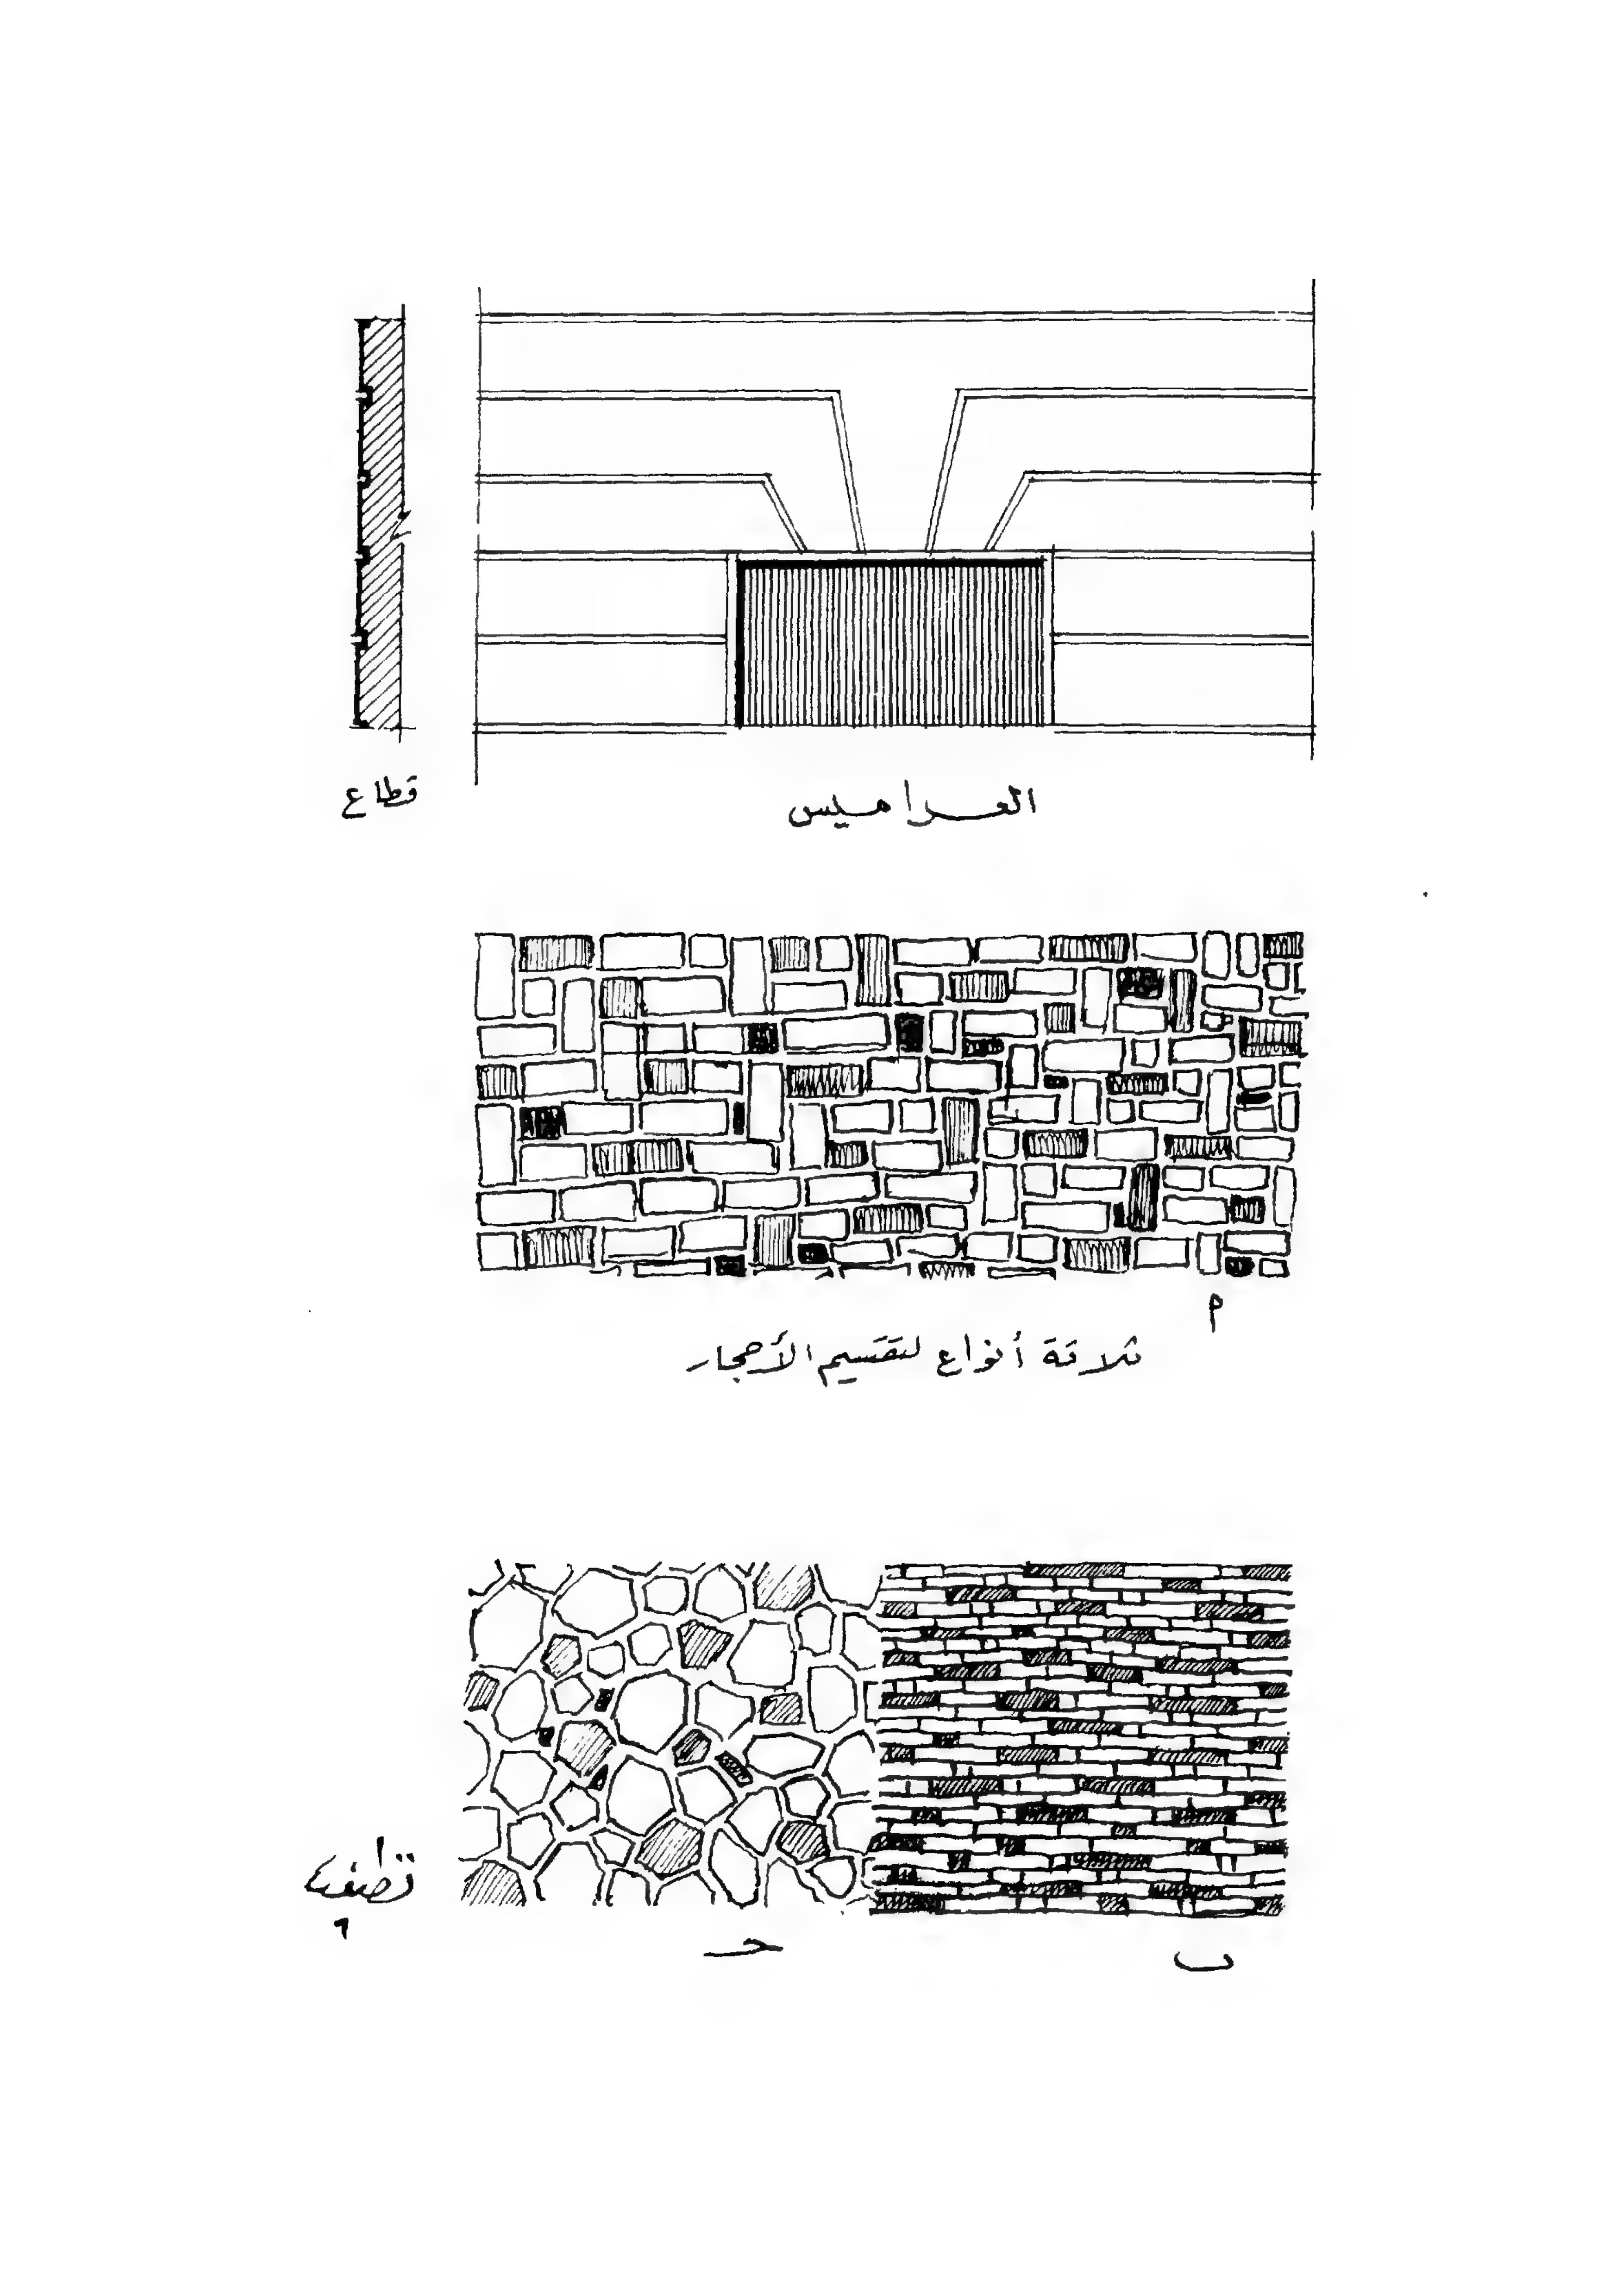 قطاع
العراميس
أ
ثلاثة أنواع لتقسيم الأحجار
ب
حـ
٦